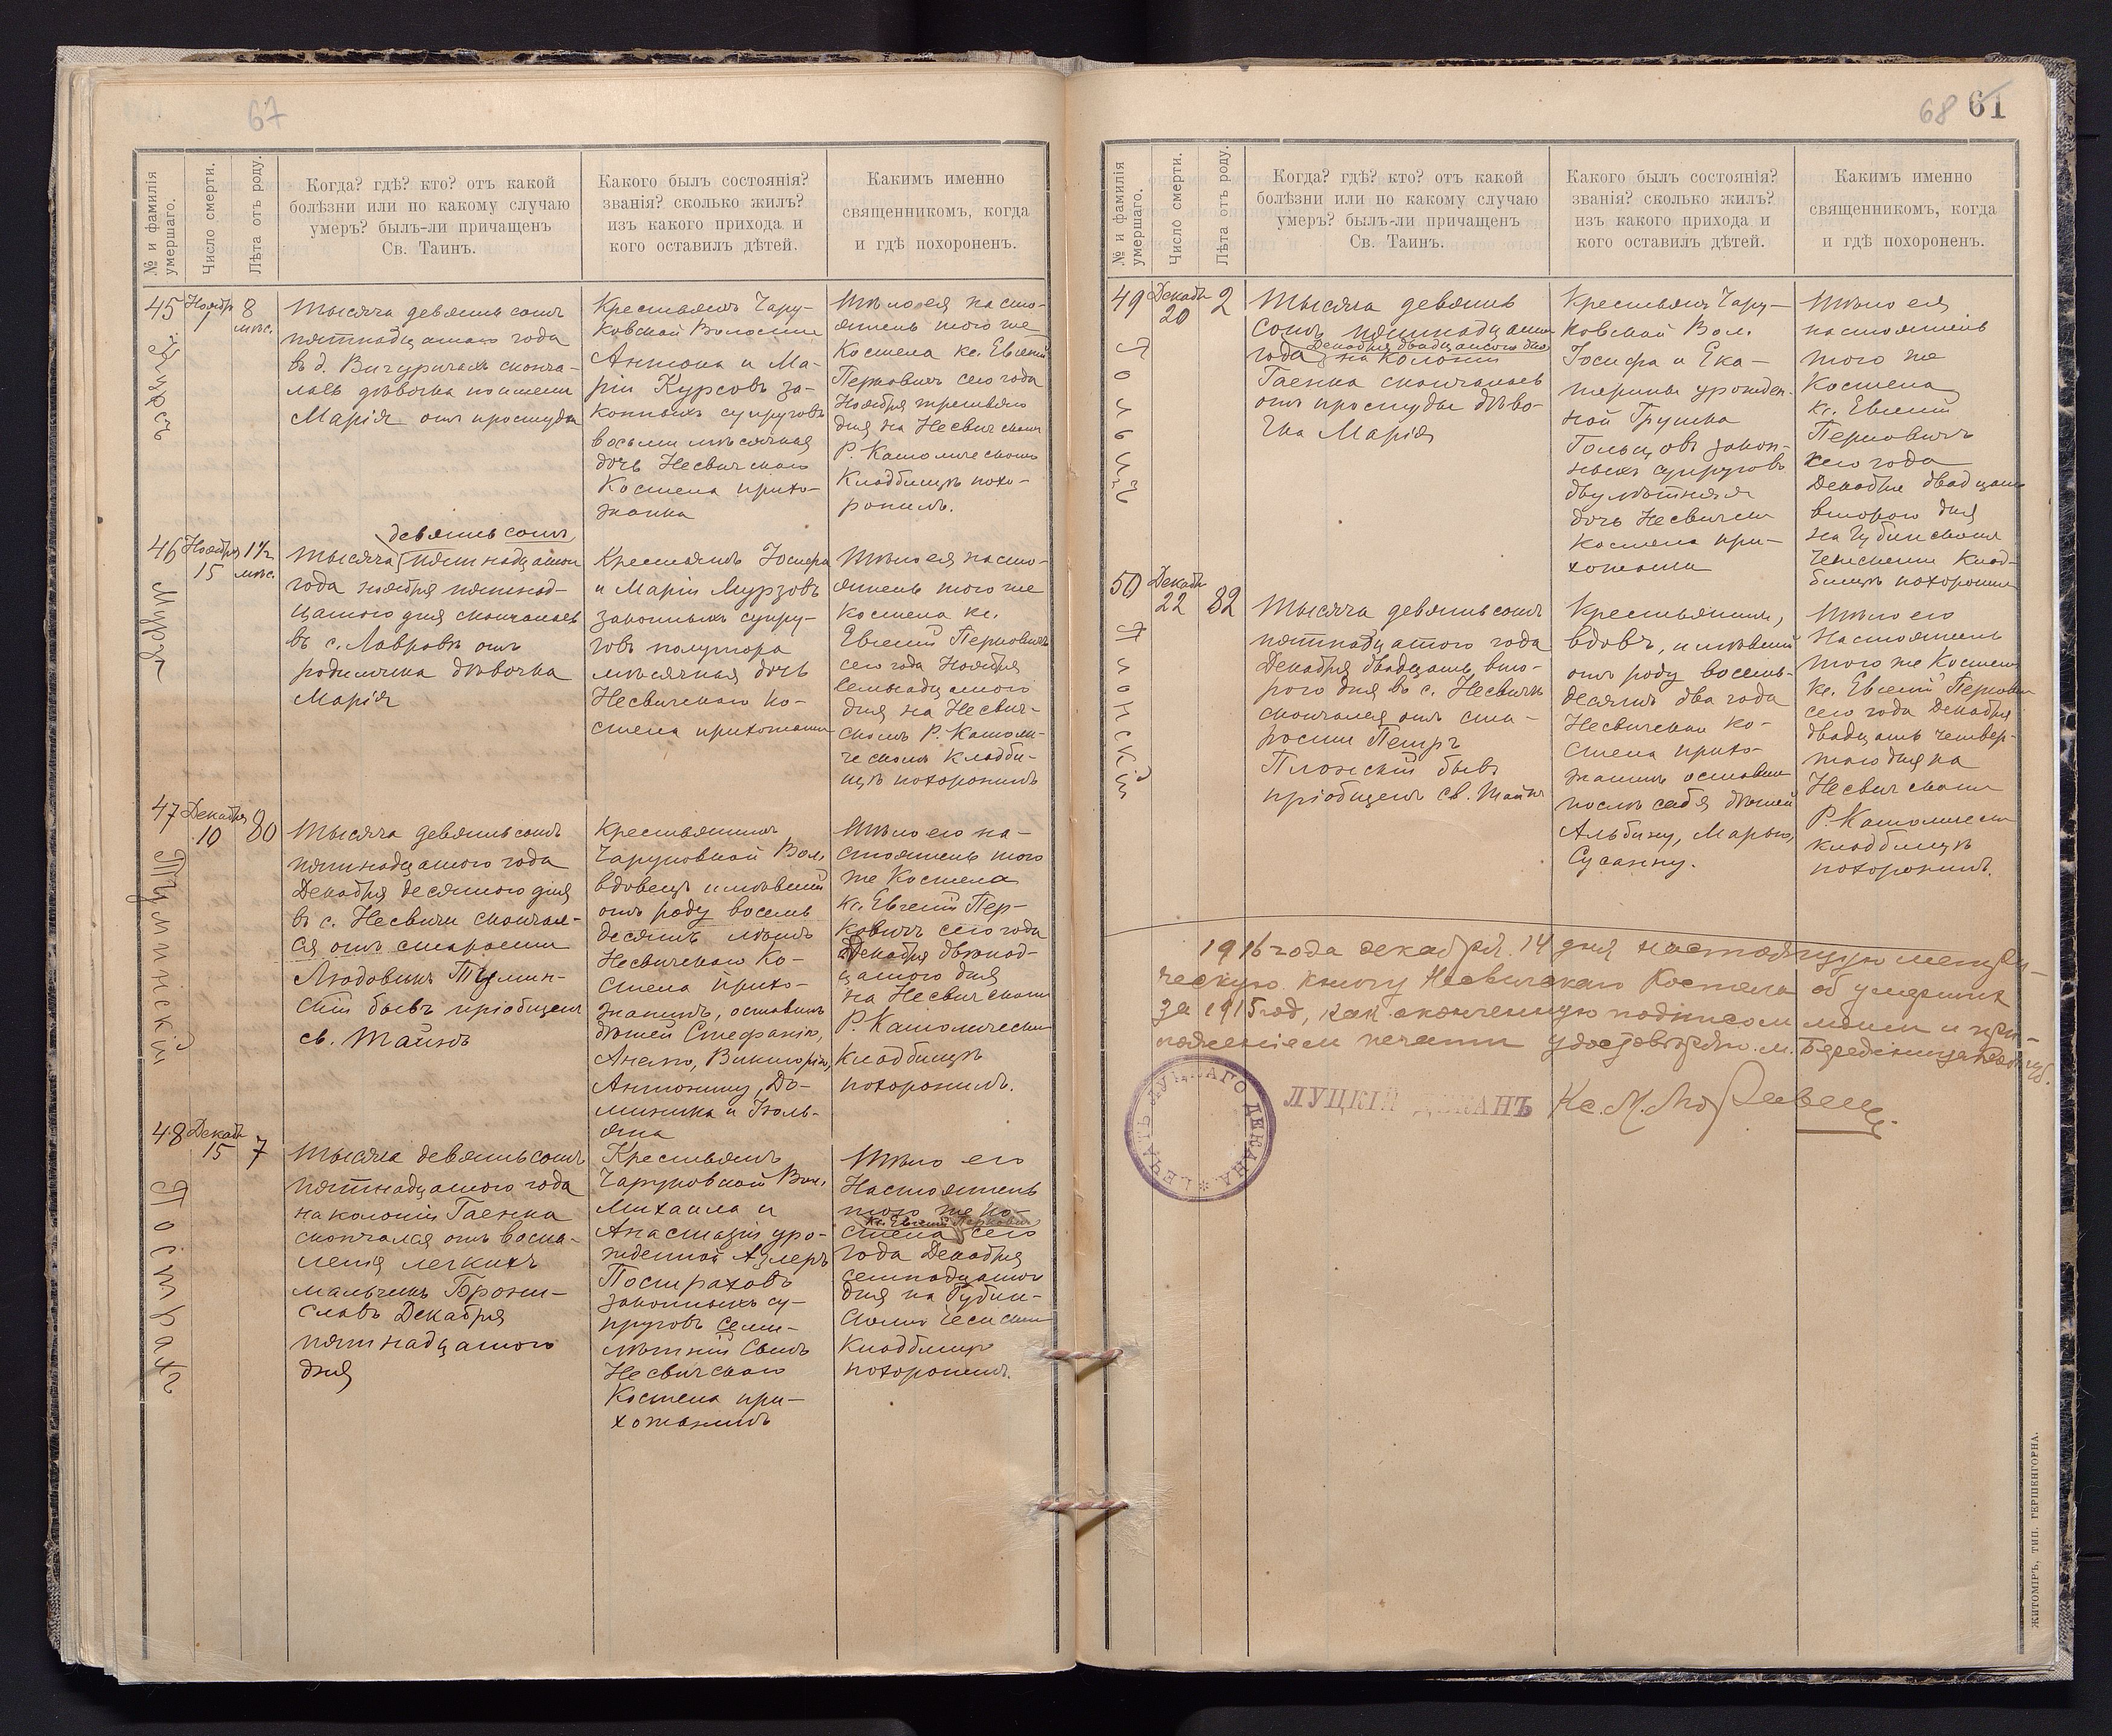 67
№ и фамилія умершаго.
Число смерти.
Лѣта отъ роду.
Когда? гдѣ? кто? отъ какой
болѣзни или по какому случаю
умеръ? былъ-ли причащенъ
Св. Таинъ.
Какого былъ состоянія?
званія? сколько жилъ?
изъ какого прихода и
кого оставилъ дѣтей.
Какимъ именно
священникомъ, когда
и гдѣ похороненъ.
45
Ноябр
1
8
мѣс.
Тысяча девятьсотъ
пятнадцатаго года
въ д. Вичуричахъ сконча-
лась дѣвочка по имени
Марія отъ простуды
Крестьянъ Чару-
ковской Волости
Антона и Ма-
ріи Курсовъ за-
конныхъ супруговъ
восьми мѣсячная
дочь Несвичскаго
Костела прихо-
жанка
Тѣло ея насто-
ятель того же
Костела кс. Евгеній
Перковичъ сего года
Ноября третьяго
дня на Несвичскомъ
Р. Католическомъ
Кладбищѣ похо-
ронилъ.
46
Ноября
15
1½
мѣс.
Мурза
девятьсотъ
Тысяча пятнадцатого
года ноября пятнад-
цатого дня скончалась
въ с. Лавровѣ отъ
родимчика дѣвочка
Марія
Крестьянъ Іосифа
и Маріи Мурзовъ
законныхъ супру-
говъ полутора
мѣсячная дочь
Несвичскаго ко-
стела прихожанка
Тѣло ея насто-
ятель того же
костела кс.
Евгеній Перковичъ
сего года Ноября
семнадцатого
дня на Несвич-
скомъ Р. Католи-
ческомъ кладби-
щѣ похоронилъ
47
Декабря
10
80
Тулинскій
Тысяча девятьсотъ
пятнадцатого года
Декабря десятого дня
въ с. Несвичи скончал-
ся отъ старости
Людовикъ Тулин-
скій бывъ пріобщенъ
св. Тайнъ
Крестьянинъ
Чаруковской Вол.
вдовецъ имѣвшій
отъ роду восемь
десятъ лѣтъ
Несвичскаго Ко-
стела прихо-
жанинъ, оставилъ
дѣтей Стефанію,
Анелю, Викторію,
Антонину, До-
миника и Юль-
яна
Тѣло его на-
стоятель того
же Костела
кс. Евгеній Пер-
ковичъ сего года
Декабря двѣнад-
цатого дня
на Несвичскомъ
Р. Католическомъ
Кладбищѣ
похоронилъ.
48
Декабр
15
7
Пострахъ
Тысяча девятьсотъ
пятнадцатого года
на колоніи Гаенка
скончался отъ воспа-
ленія легкихъ
мальчикъ Брони-
славъ Декабря
пятнадцатого
дня
Крестьянъ
Чаруковской Вол.
Михаила и
Анастазіи уро-
жденной Адлеръ
Постраховъ
законныхъ су-
пруговъ семи-
лѣтній сынъ
Несвичскаго
Костела при-
хожанинъ
Тѣло его
Настоятель
того же ко-
кс. Евгеній Перковичъ
стела сего
года Декабря
семнадцатого
дня на Губин-
скомъ Чешскомъ
Кладбищѣ
похоронилъ.
68 61
№ и фамилія умершаго.
Число смерти.
Лѣта отъ роду.
Когда? гдѣ? кто? отъ какой
болѣзни или по какому случаю
умеръ? былъ-ли причащенъ
Св. Таинъ.
Какого былъ состоянія?
званія? сколько жилъ?
изъ какого прихода и
кого оставилъ дѣтей.
Какимъ именно
священникомъ, когда
и гдѣ похороненъ.
49
Декабр
20
2
Гольцъ
Тысяча девять
сотъ пятнадцатого
Декабря двадцатого дня
года на Колоніи
Гаенка скончалась
отъ простуды дѣво-
чка Марія
Крестьянъ Чару-
ковской Вол.
Іосифа и Ека-
терины урожден-
ной Грушка
Гольцовъ закон-
ныхъ супруговъ
двулѣтняя
дочь Несвичскаго
костела при-
хожанка
Тѣло ея
настоятель
того же
Костела
кс. Евгеній
Перковичъ
сего года
Декабря двадцать
второго дня
на Губинскомъ
Чешскомъ Клад-
бищѣ похоронилъ
50
Декабр
22
82
Плонскій
Тысяча девятьсотъ
пятнадцатого года
Декабря двадцать вто-
рого дня въ с. Несвичѣ
скончался отъ ста-
рости Петръ
Плонскій бывъ
пріобщенъ св. Тайнъ
Крестьянинъ,
вдовъ, имѣвшій
отъ роду восемь-
десятъ два года
Несвичскаго ко-
стела прихо-
жанинъ оставилъ
послѣ себя дѣтей
Альбину, Марью,
Сусанну.
Тѣло его
Настоятель
того же Костела
кс. Евгеній Перкович
сего года Декабря
двадцать четвер-
того дня на
Несвичскомъ
Р. Католическомъ
кладбищѣ
похоронилъ.
1916 года декабря 14 дня настоящую метри-
ческую книгу Несвичскаго Костела об умерших
за 1915 год, как оконченную подписом моим и при-
ложеніем печати удостовѣряю. м.
ПЕЧАТЬ ЛУЦКАГО ДЕКАНА
ЛУЦКІЙ ДЕКАНЪ
Кс.
ЖИТОМІРЪ, ТИП. ГЕРШЕНГОРНА.